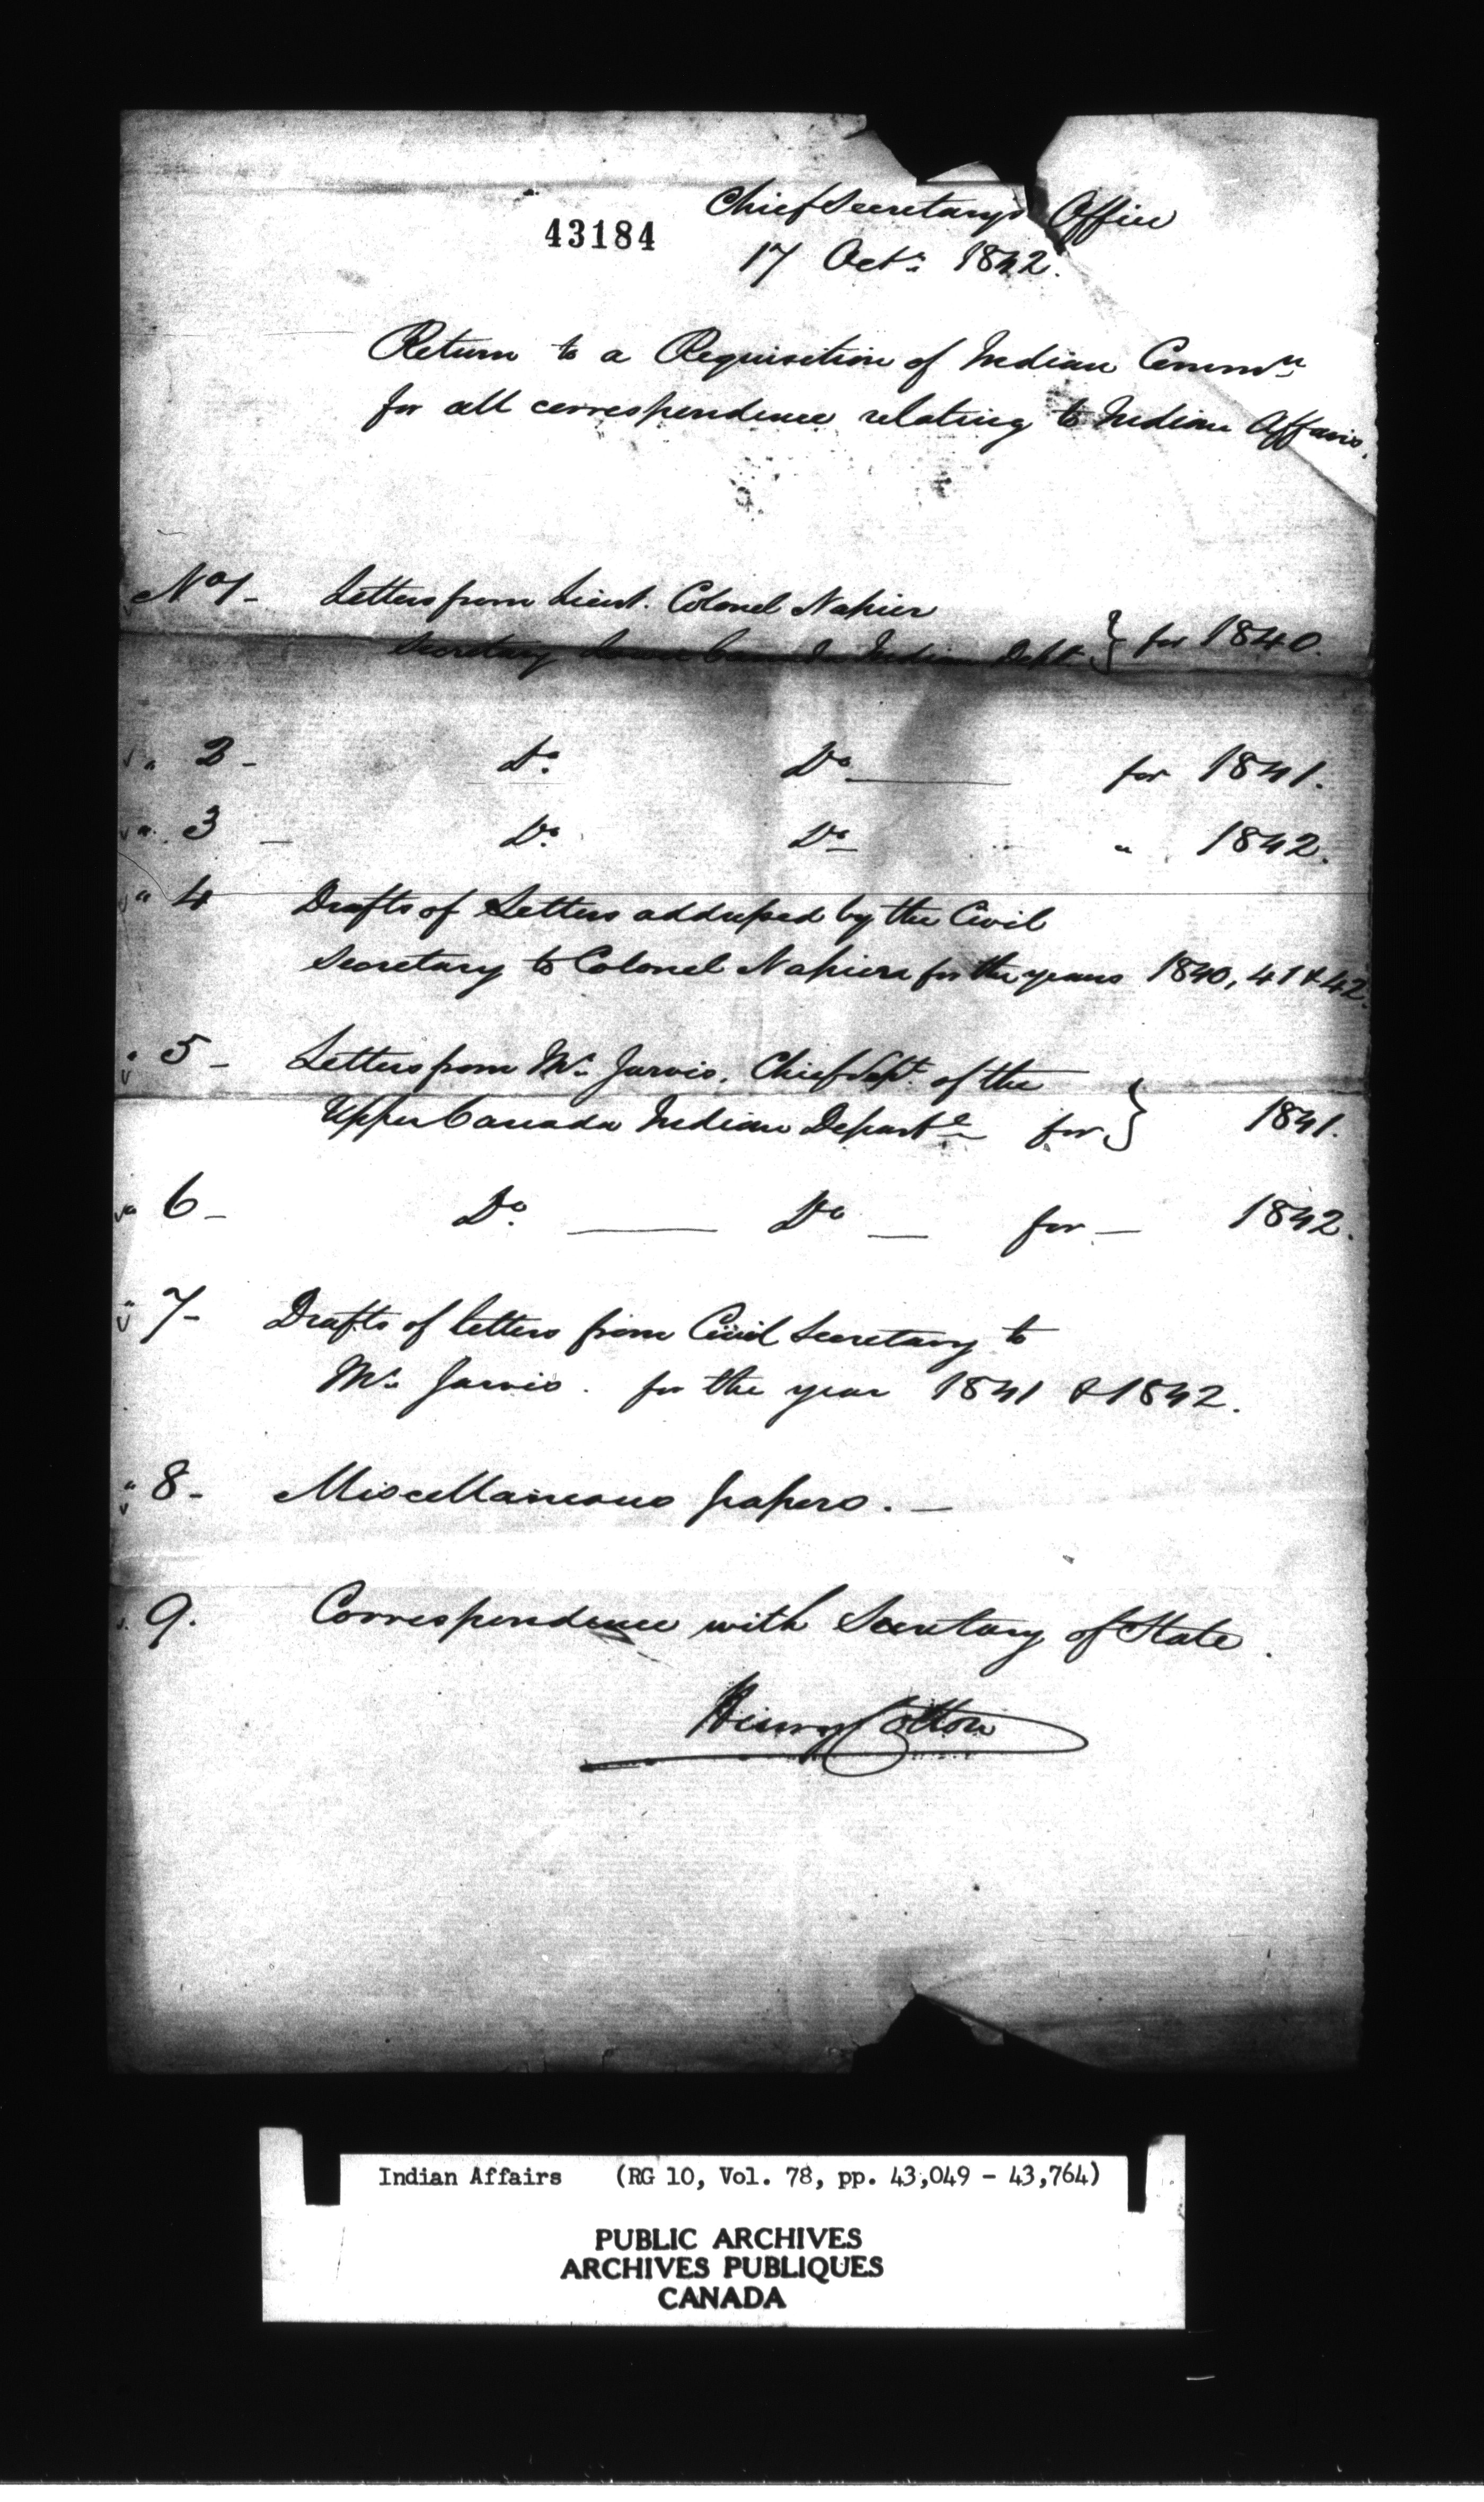 43184
Chief Secretary's Office
17 Octr. 1842.
Return to a Requisition of Indian Commn
for all correspondence relating to Indian Affairs.
No 1 - Letters from Lieut. Colonel Napier
Secretary Lower Canada Indian Dept } for 1840.
" 2 - Do. Do. for 1841.
" 3 - Do. Do " 1842.
" 4 Drafts of Letters addressed by the Civil
Secretary to Colonel Napier for the years 1840, 41 & 42.
" 5 - Letters from Mr. Jarvis. Chief Supt. of the
Upper Canada Indian Departt for } 1841.
" 6 - Do. Do for - 1842.
" 7 - Drafts of letters from Civil Secretary to
Mr. Jarvis. for the year 1841 & 1842.
" 8 - Miscellaneous papers. -
9. Correspondence with Secretary of State.
Henry Cotton
Indian Affairs (RG 10, Vol. 78, pp. 43,049 - 43,764)
PUBLIC ARCHIVES
ARCHIVES PUBLIQUES
CANADA